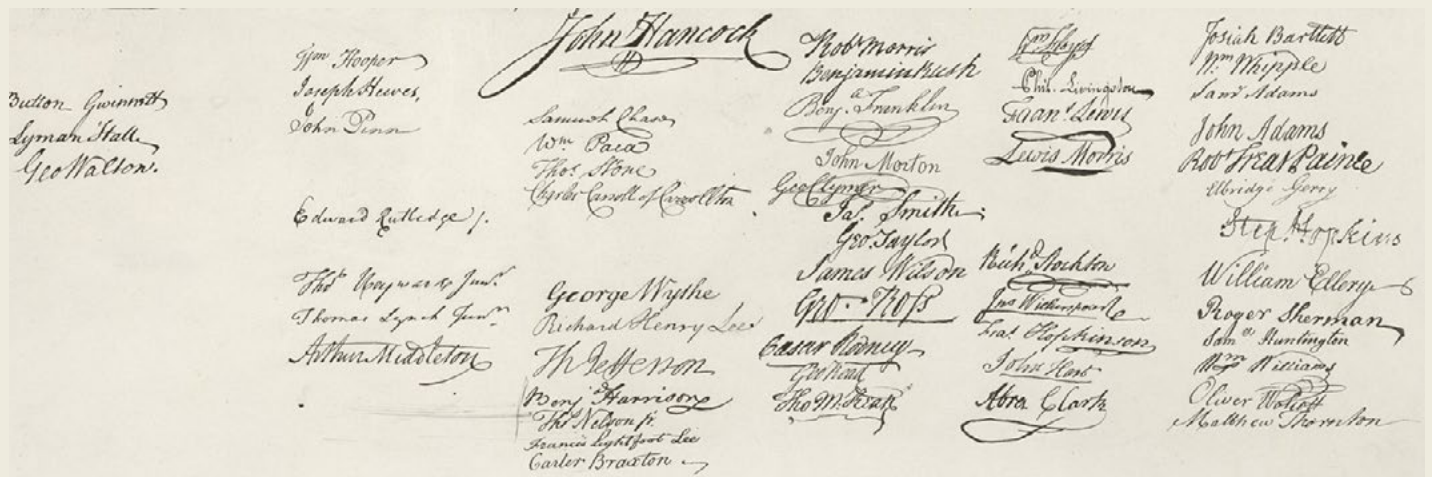 Button Gwinnett
Lyman Hall
Geo Walton.
Wm Hooper
Joseph Hewes,
John Penn
Edward Rutledge /.
Thos Heyward Junr.
Thomas Lynch Junr.
Arthur Middleton
John Hancock
Samuel Chase
Wm Paca
Thos. Stone
Charles Carroll of Carrollton
George Wythe
Richard Henry Lee
Th Jefferson
Benj Harrison
Thos Nelson jr.
Francis Lightfoot Lee
Carter Braxton
Robt Morris
Benjamin Rush
Benja. Franklin
John Morton
Geo Clymer
Jas. Smith
Geo. Taylor
James Wilson
Geo. Ross
Caesar Rodney
Geo Read
Tho M:Kean
Wm Floyd
Phil. Livingston
Frans. Lewis
Lewis Morris
Richd. Stockton
Jno Witherspoon
Fras. Hopkinson
John Hart
Abra Clark
Josiah Bartlett
Wm. Whipple
Saml Adams
John Adams
Robt Treat Paine
Elbridge Gerry
Step. Hopkins
William Ellery
Roger Sherman
Samel Huntington
Wm Williams
Oliver Wolcott
Matthew Thornton